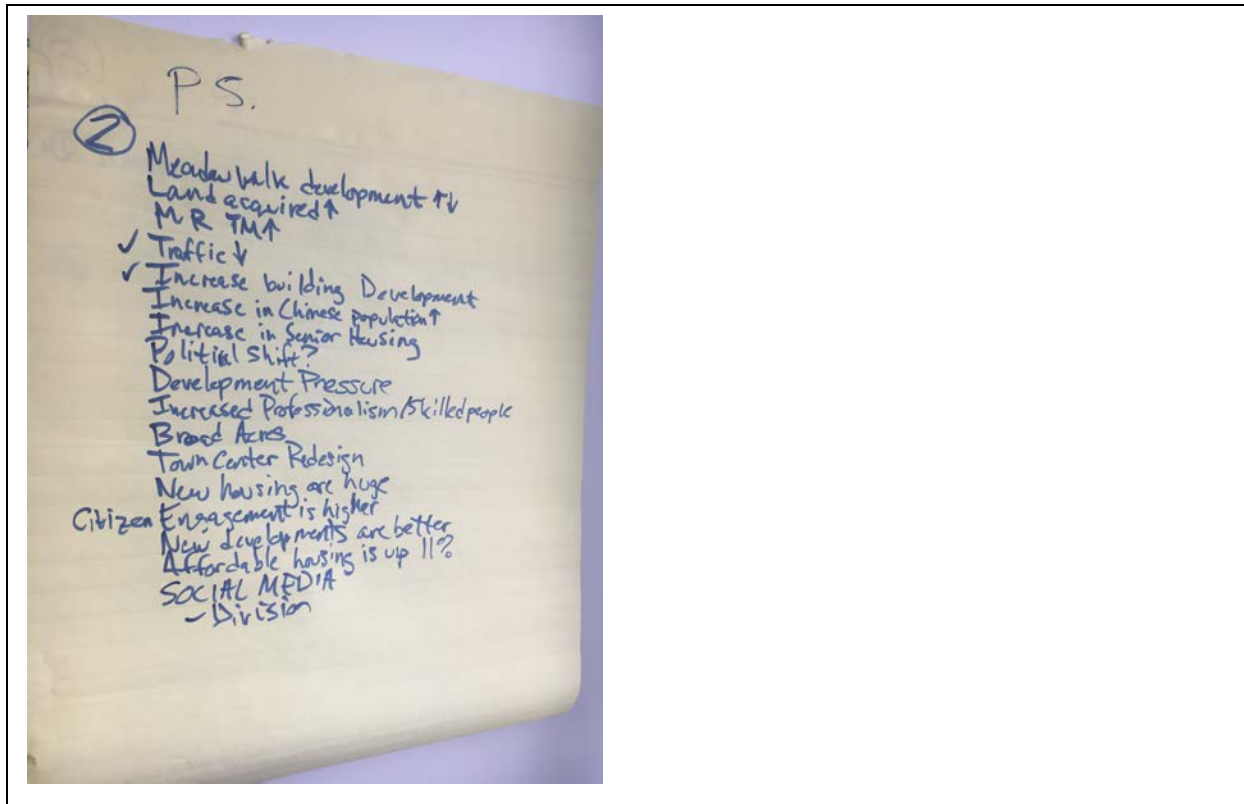 P S.
2
Meadow walk development ↑↓
Land acquired ↑
M R TM ↑
✓ Traffic ↓
✓ Increase building Development
Increase in Chinese population ↑
Increase in Senior Housing
Political Shift?
Development Pressure
Increased Professionalism/Skilled people
Broad Acres
Town Center Redesign
New housing are huge
Citizen Engagement is higher
New developments are better
Affordable housing is up 11%
SOCIAL MEDIA
- Division